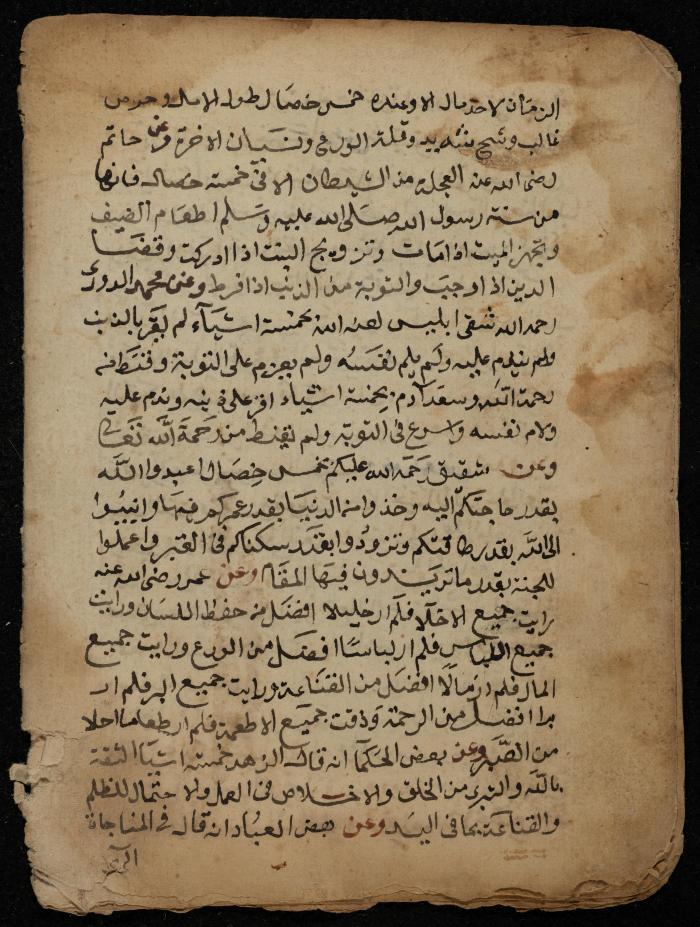 الزمان لاحد مال الا وعنده خمس خصال طول الامل وحرص
غالب وشح شديد وقلة الورع ونسيان الاخرة وعن حاتم
رضى الله عنه العجلة من الشيطان الا فى خمسة خصال فانها
من سنة رسول الله صلى الله عليه وسلم اطعام الضيف
وتجهيز الميت اذا مات وتزويج البنت اذا ادركت وقضا
الدين اذا وجب والتوبة من الذنب اذا فرط وعن محمد الدورى
رحمه الله شقى ابليس لعنه الله بخمسة اشيآء لم يقر بالذنب
ولم يندم عليه ولم يلم نفسه ولم يعزم على التوبة وقنط من
رحمة الله وسعد ادم بخمسة اشياء اقر على ذنبه وندم عليه
ولام نفسه واسرع فى التوبة ولم يقنط من رحمة الله تعالى
وعن شقيق رحمه الله عليكم بخمس خصال اعبدوا الله
بقدر حاجتكم اليه وخذوا من الدنيا بقدر عمركم فيها وانيبوا
الى الله بقدر طاقتكم وتزودوا بقدر سكناكم فى القبر واعملوا
للجنة بقدر ما تريدون فيها المقام وعن عمر رضى الله عنه
رايت جميع الاخلا فلم ار خليلا افضل من حفظ اللسان ورايت
جميع اللباس فلم ار لباسا افضل من الورع ورايت جميع
المال فلم ار مالا افضل من القناعة ورايت جميع البر فلم ار
برا افضل من الرحمة وذقت جميع الاطعمة فلم ار طعاما احلا
من الصبر وعن بعض الحكما انه قال الزهد خمسة اشيا الثقة
بالله والتبرى من الخلق والاخلاص فى العمل والاحتمال للظلم
والقناعة بما فى اليد وعن بعض العباد انه قال فى المناجاة